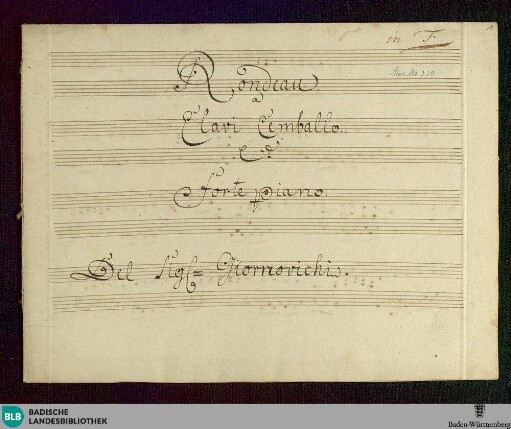 in F.
1
Rondeau
Clavi Cemballo.
e
Forte piano.
Del Sigl= Giornovichi.
BLB BADISCHE
LANDESBIBLIOTHEK
Baden-Württemberg